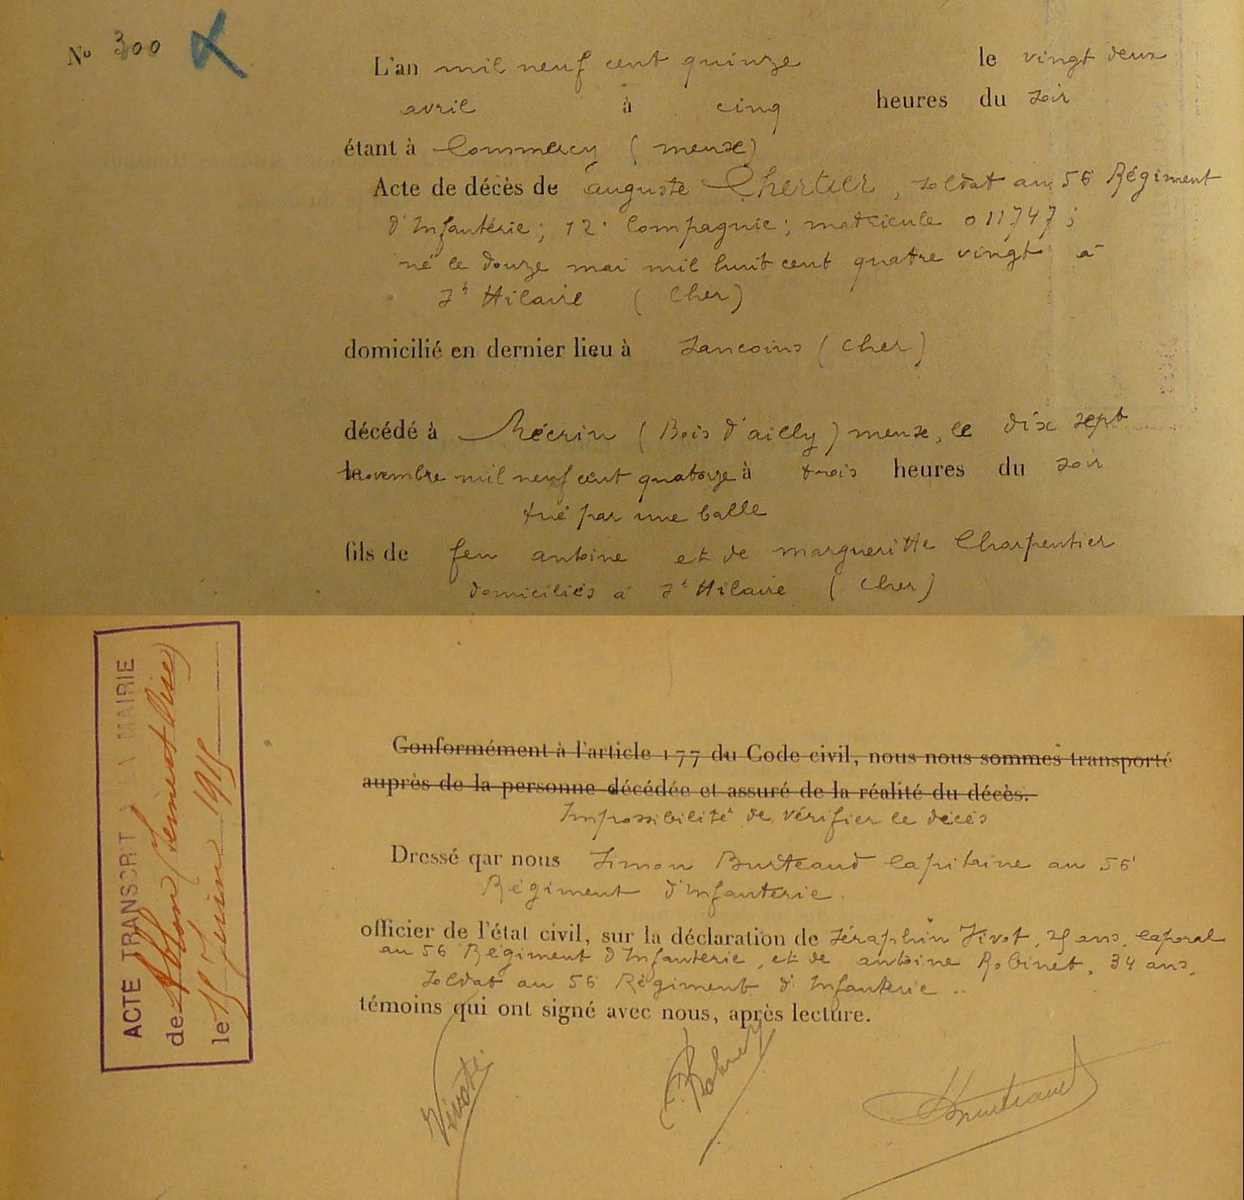 No 300
L'an mil neuf cent quinze le vingt deux
avril à cinq heures du soir
étant à Commercy (meuse)
Acte de décès de auguste Chertier, soldat au 56 Régiment
d'Infanterie; 12e Compagnie; matricule 011747;
né le douze mai mil huit cent quatre vingt à
St Hilaire (Cher)
domicilié en dernier lieu à Sancoins (Cher)
décédé à Mécrin (Bois d'ailly) meuse, le dix sept
novembre mil neuf cent quatorze à trois heures du soir
tué par une balle
fils de feu antoine et de margueritte Charpentier
domiciliés à St Hilaire (Cher)
Conformément à l'article 177 du Code civil, nous nous sommes transporté
auprès de la personne décédée et assuré de la réalité du décès.
Impossibilité de vérifier le décès
Dressé qar nous Simon Burteaud Capitaine au 56e
Régiment d'Infanterie.
officier de l'état civil, sur la déclaration de Séraphin Vivot, ans, caporal
au 56 Régiment d'Infanterie, et de antoine Robinet, 34 ans,
soldat au 56 Régiment d'Infanterie..
témoins qui ont signé avec nous, après lecture.
ACTE TRANSCRIT A LA MAIRIE
de Ablon (Seine et Oise)
le Juin 1915